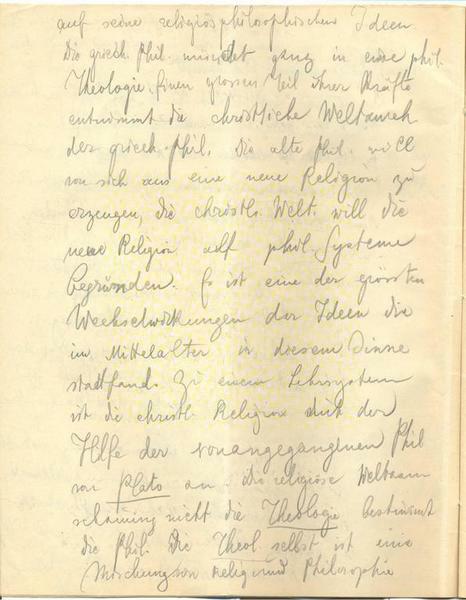 auf seine religiösphilosophischen Ideen
Die griech. Phil. mündet ganz in eine phil.
Theologie. Einen grossen Teil ihrer Kräfte
entnimmt die christliche Weltansch
der griech. Phil. Die alte Phil. will
von sich aus eine neue Religion zu
erzeugen, die christl. Welt. will die
neue Religion auf phil. Systeme
begründen. Es ist eine der grössten
Wechselwirkungen der Ideen die
im Mittelalter in diesem Sinne
stadtfand. Zu einem Lehrsystem
ist die christl. Religion mit der
Hilfe der vorangegangenen Phil
von Plato an. Die religiöse Weltan
schauung nicht die Theologie bestimmt
die Phil. Die Theol. selbst ist eine
Mischung von Relig und Philosophie